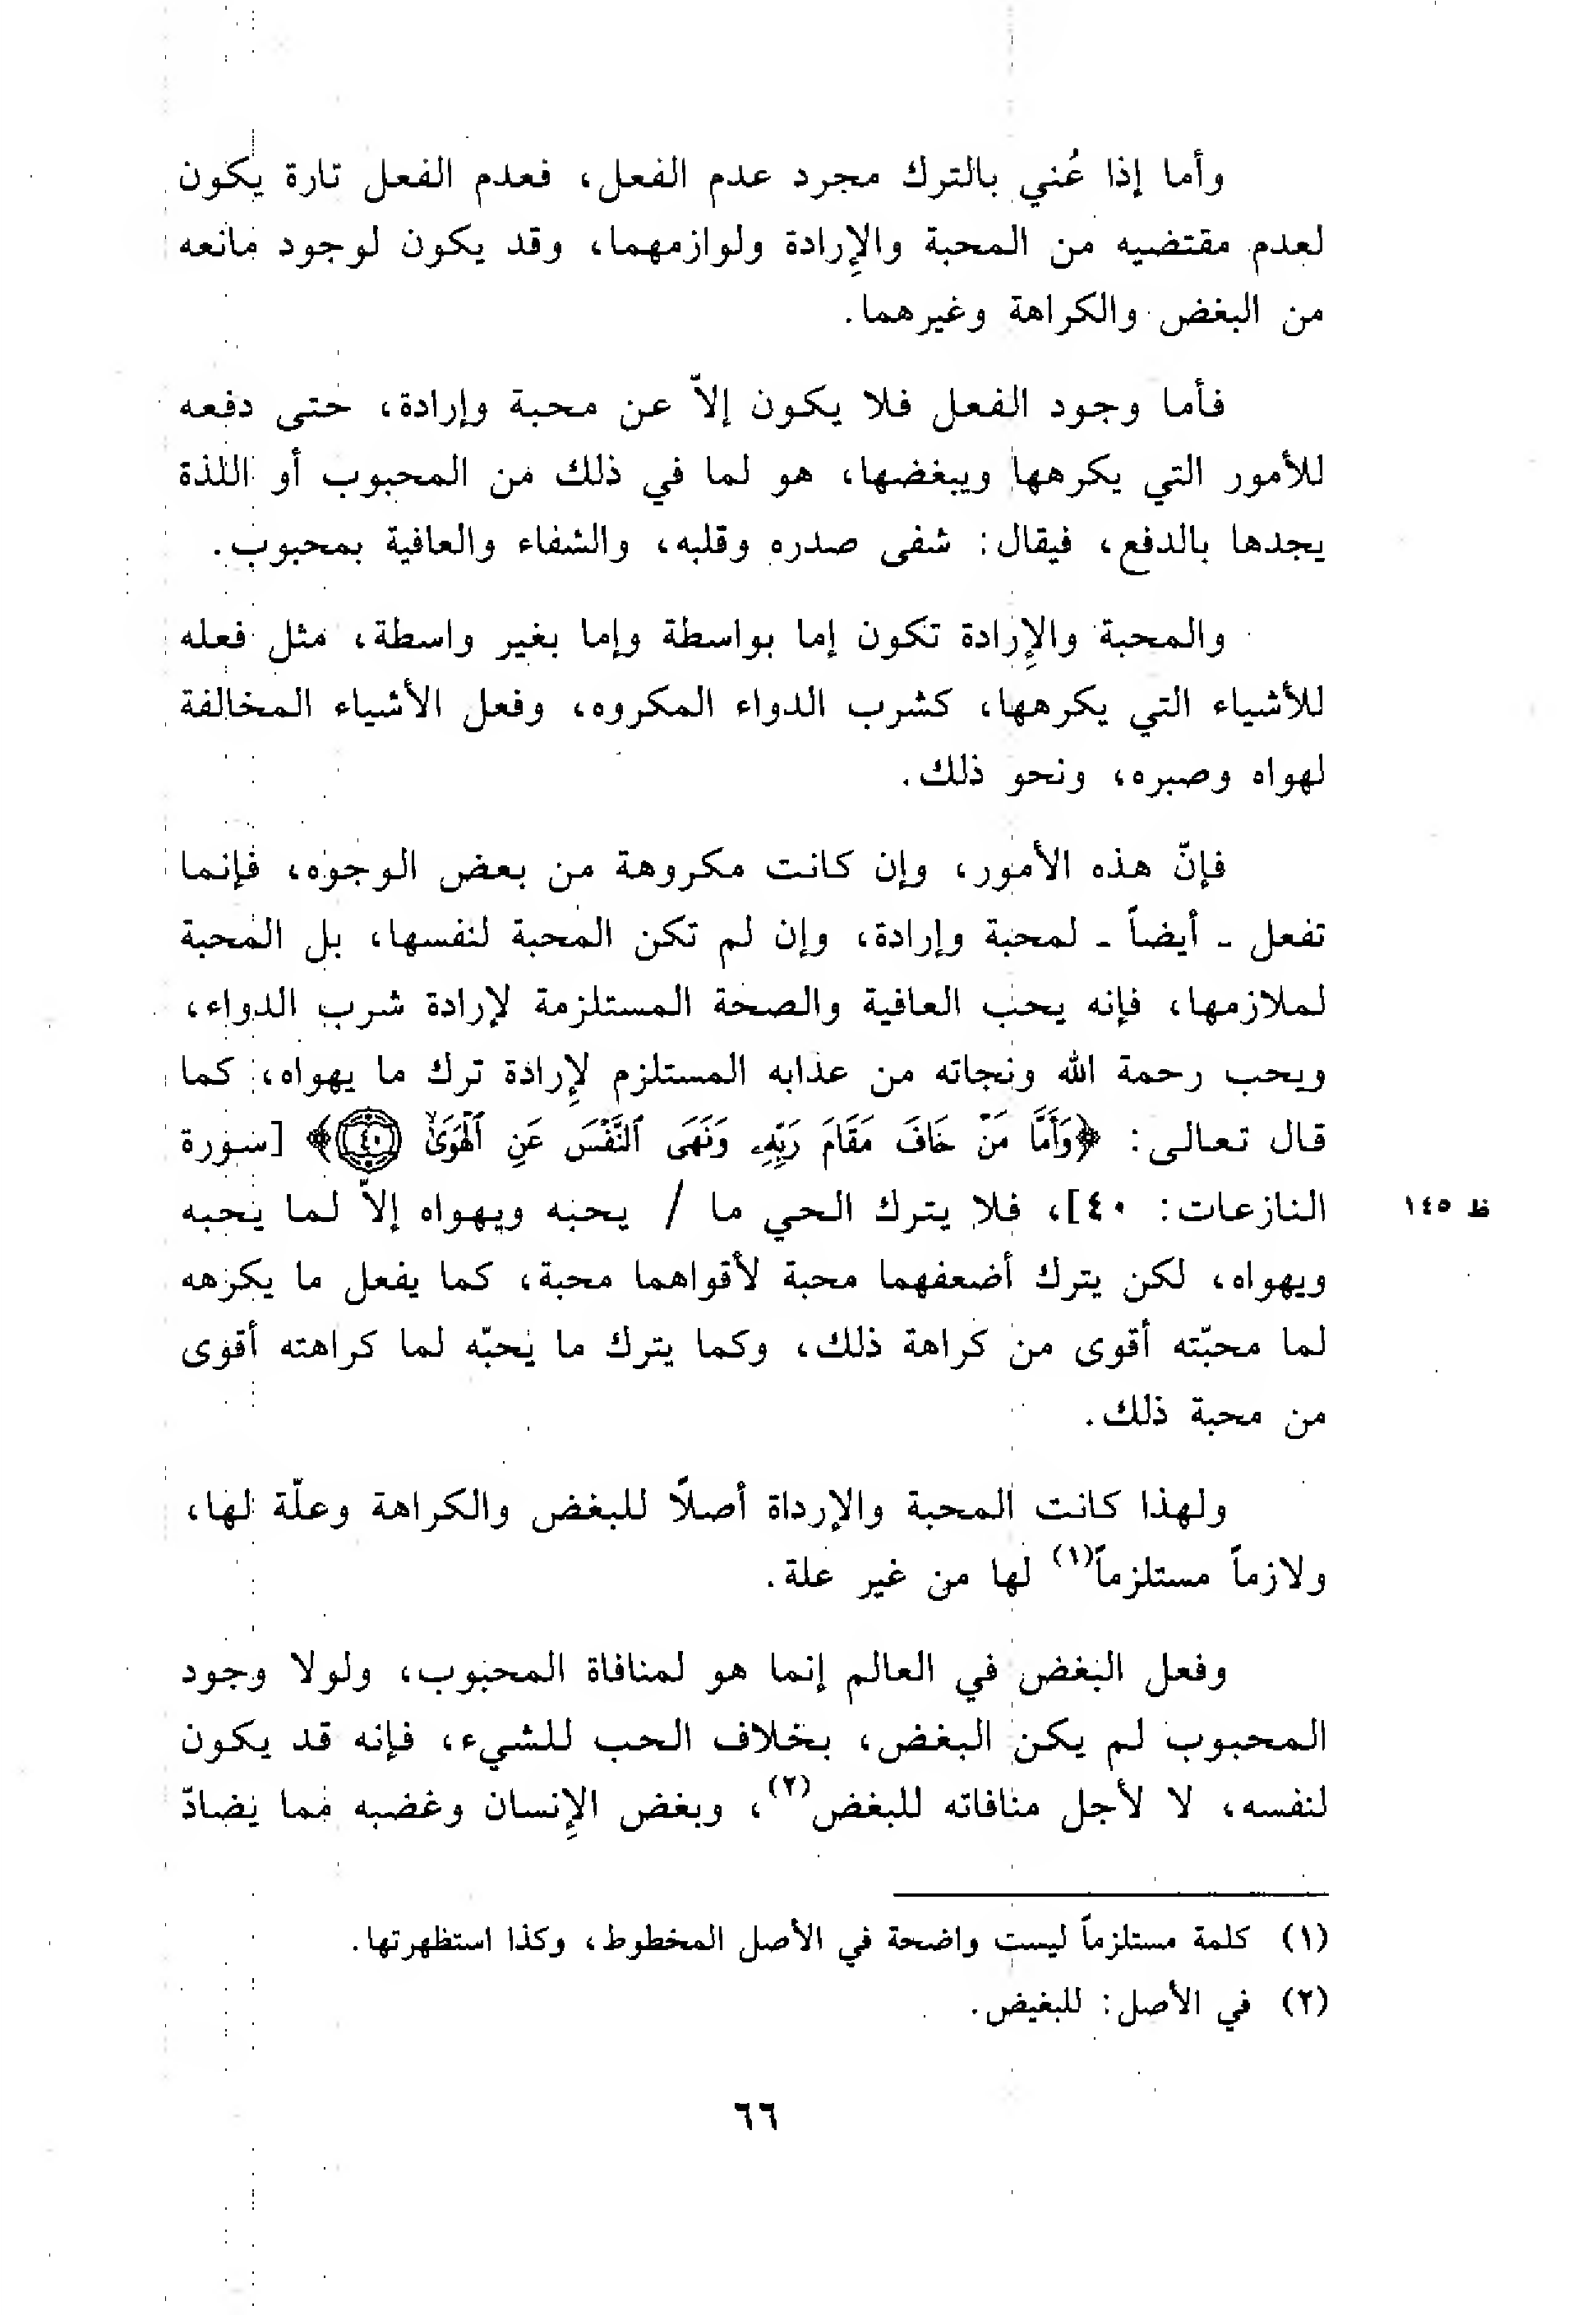 وأما إذا عُني بالترك مجرد عدم الفعل، فعدم الفعل تارة يكون
لعدم مقتضيه من المحبة والإِرادة ولوازمهما، وقد يكون لوجود مانعه
من البغض والكراهة وغيرهما.
فأما وجود الفعل فلا يكون إلاّ عن محبة وإرادة، حتى دفعه
للأمور التي يكرهها ويبغضها، هو لما في ذلك من المحبوب أو اللذة
يجدها بالدفع، فيقال: شفى صدره وقلبه، والشفاء والعافية بمحبوب.
والمحبة والإِرادة تكون إما بواسطة وإما بغير واسطة، مثل فعله
للأشياء التي يكرهها، كشرب الدواء المكروه، وفعل الأشياء المخالفة
لهواه وصبره، ونحو ذلك.
فإنّ هذه الأمور، وإن كانت مكروهة من بعض الوجوه، فإنما
تفعل - أيضاً - لمحبة وإرادة، وإن لم تكن المحبة لنفسها، بل المحبة
لملازمها، فإنه يحب العافية والصحة المستلزمة لإرادة شرب الدواء،
ويحب رحمة الله ونجاته من عذابه المستلزم لإِرادة ترك ما يهواه، كما
قال تعالى: ﴿وَأَمَّا مَنْ خَافَ مَقَامَ رَبِّهِۦ وَنَهَى ٱلنَّفْسَ عَنِ ٱلْهَوَىٰ ٤٠﴾ [سورة
النازعات: ٤٠]، فلا يترك الحي ما / يحبه ويهواه إلاّ لما يحبه
ظ ١٤٥
ويهواه، لكن يترك أضعفهما محبة لأقواهما محبة، كما يفعل ما يكرهه
لما محبّته أقوى من كراهة ذلك، وكما يترك ما يحبّه لما كراهته أقوى
من محبة ذلك.
ولهذا كانت المحبة والإرداة أصلًا للبغض والكراهة وعلّة لها،
ولازماً مستلزماً(١) لها من غير علة.
وفعل البغض في العالم إنما هو لمنافاة المحبوب، ولولا وجود
المحبوب لم يكن البغض، بخلاف الحب للشيء، فإنه قد يكون
لنفسه، لا لأجل منافاته للبغض(٢)، وبغض الإِنسان وغضبه مما يضادّ
(١) كلمة مستلزماً ليست واضحة في الأصل المخطوط، وكذا استظهرتها.
(٢) في الأصل: للبغيض.
٦٦